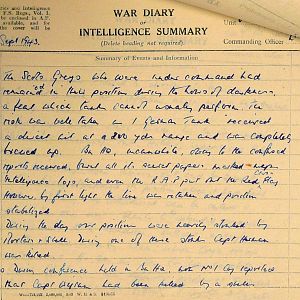 and Intelligence
F.S. Regs., Vol. I.
be contained in A.F.
available, and for
the cover will be
WAR DIARY
or
INTELLIGENCE SUMMARY
(Delete heading not required).
Unit
Commanding Officer
Sept 1943.
Summary of Events and Information
The Scots Greys who were under command had
remained in their position during the hours of darkness,
a feat which tanks cannot normally perform. The
risk was well taken as 1 German Tank received
a direct hit at a 200 yds range and was completely
brewed up. Bn HQ, meanwhile, owing to the confused
reports received, burnt all its secret papers,
Intelligence logs, and even the R.A.P put out the Red Flag
However by first light the line was retaken and position
stabilized
During the day our position were heavily stonked by
Mortars & Shells. During one of these stonks Capt
was killed
Conference held in Bn HQ, No 1 Coy reported
that Capt had been killed by a